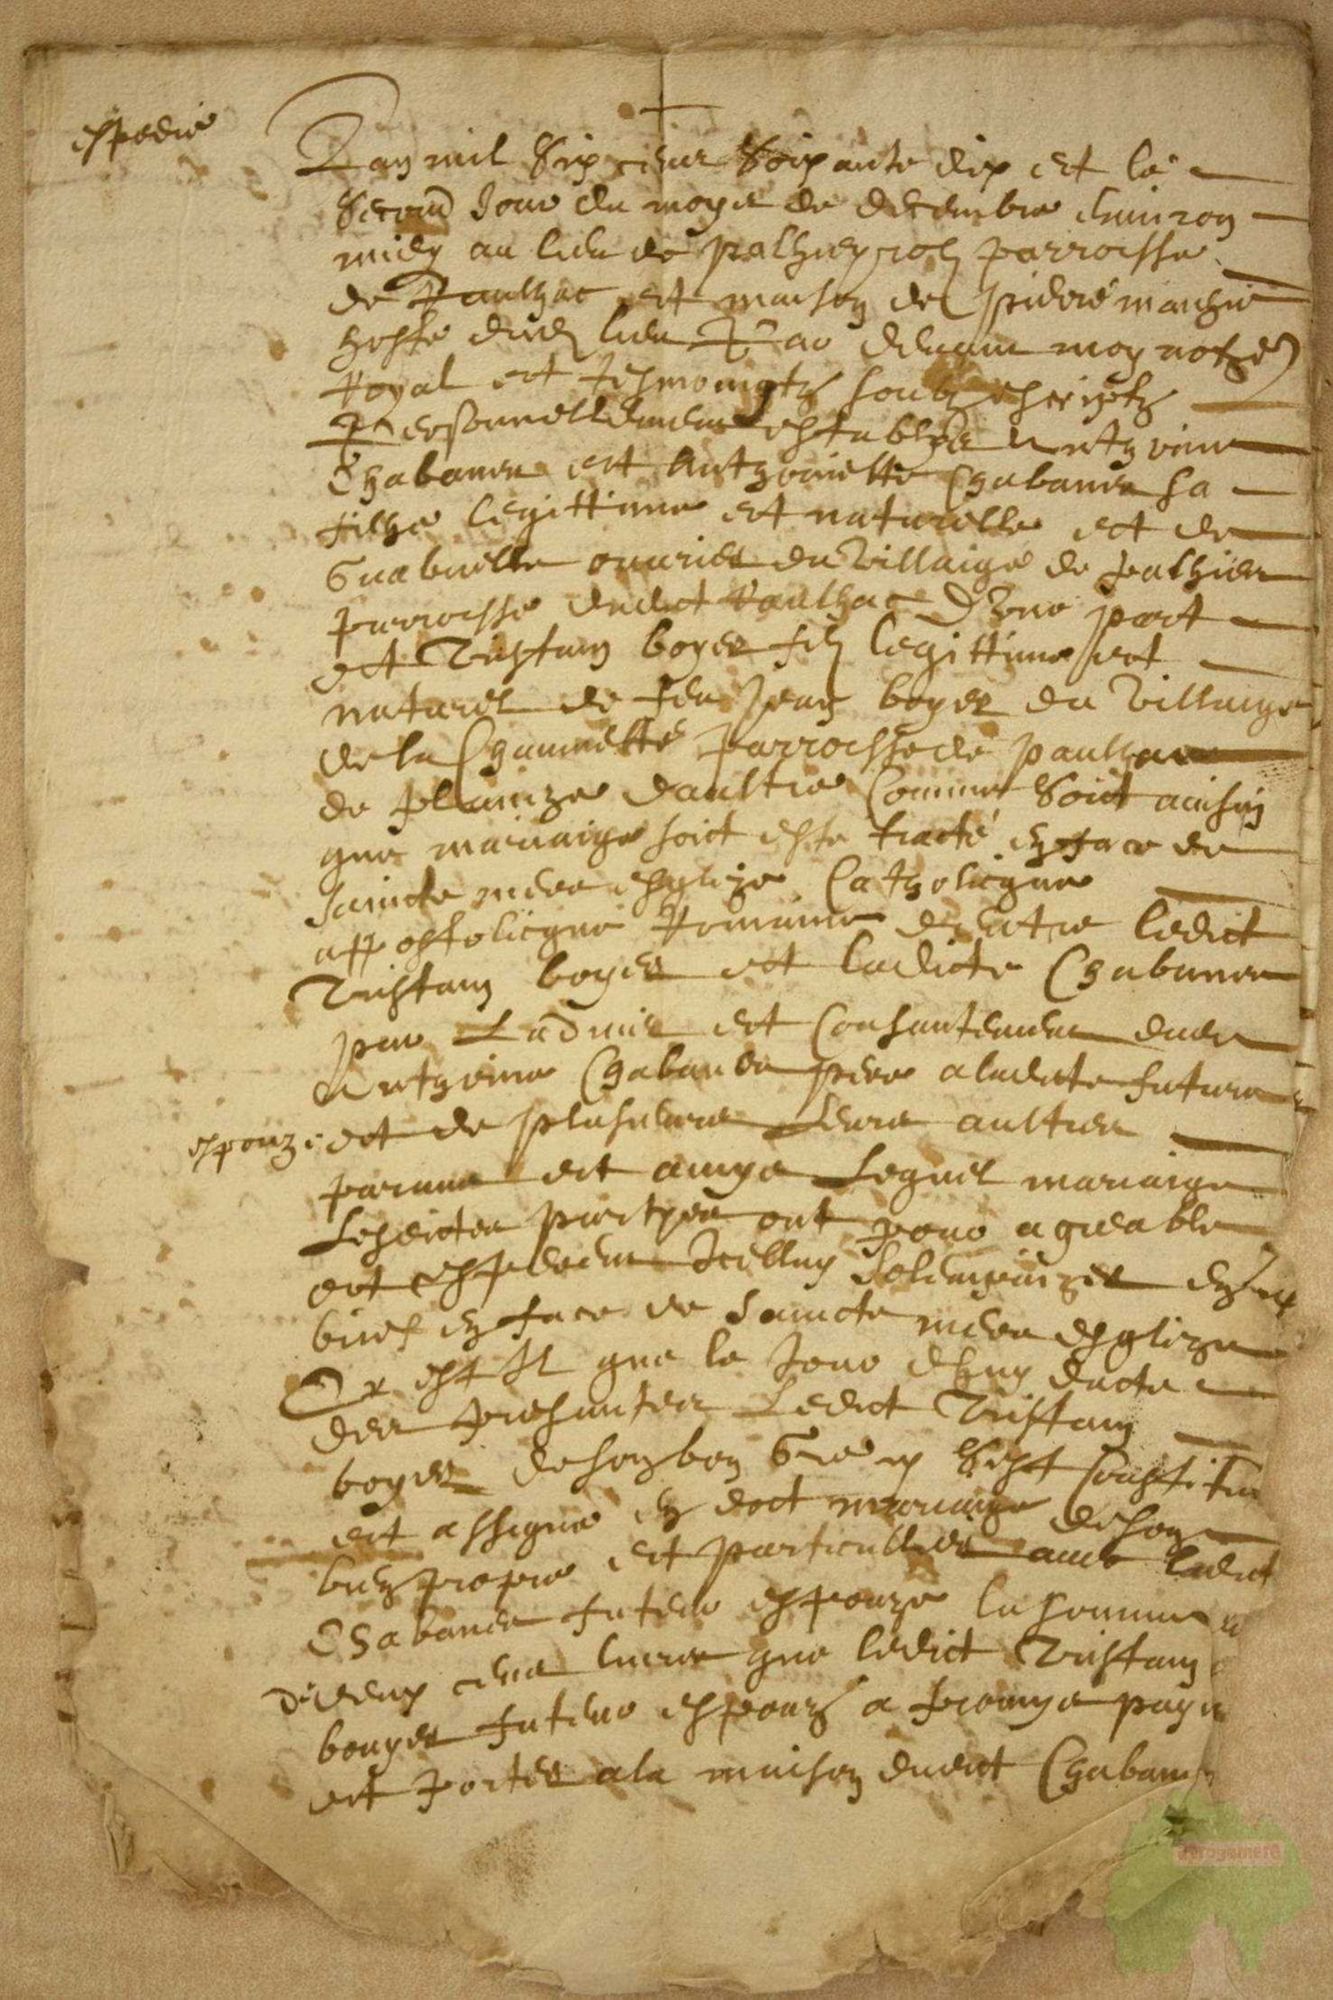 expedié
L'an mil six cens soixante dix et le
second jour du moys de decembre environ
midy au lieu de palhieyrols parroisse
de Paulhac et maison de pierre
hoste dud lieu Par devant moy notre
Royal et tesmoingtz soubzescriptz
Personnellement establys Anthoine
Chabanes et Anthoinette Chabanes sa
filhe legittime et naturelle et de
Guabrielle du Villaige de
parroisse dudict Paulhac D'une part
et Tristam boyer filz legittime et
naturel de feu Jean boyer du Villaige
de la Chaumette parroisse de paulhac
de d'aultre Comme soict ainsin
que mariaige soict esté tracté en face de
saincte mere esglize Catholicque
appostolicque Romaine d'entre ledict
Tristam boyer et ladicte Chabanes
par L'advis et consantement dud
Anthoine Chabanes pere a ladicte future
espouze et de plusieurs Leurs aultres
parans et amys Lequel mariaige
Lesdictes partyes ont pour agreable
et icelluy solempnizer en
bref en face de saincte mere esglize
Or est Il que le Jour d'huy dacte
des presantes Ledict Tristam
boyer de son bon Gré c'est constitué
et assigné en doct mariaige de son
bien propre et particullier avec ladicte
Chabanes future espouze la somme
de deux cens livres que ledict Tristam
bouyer futeur espoux a promys payer
et porter a la maison dudict Chabanes